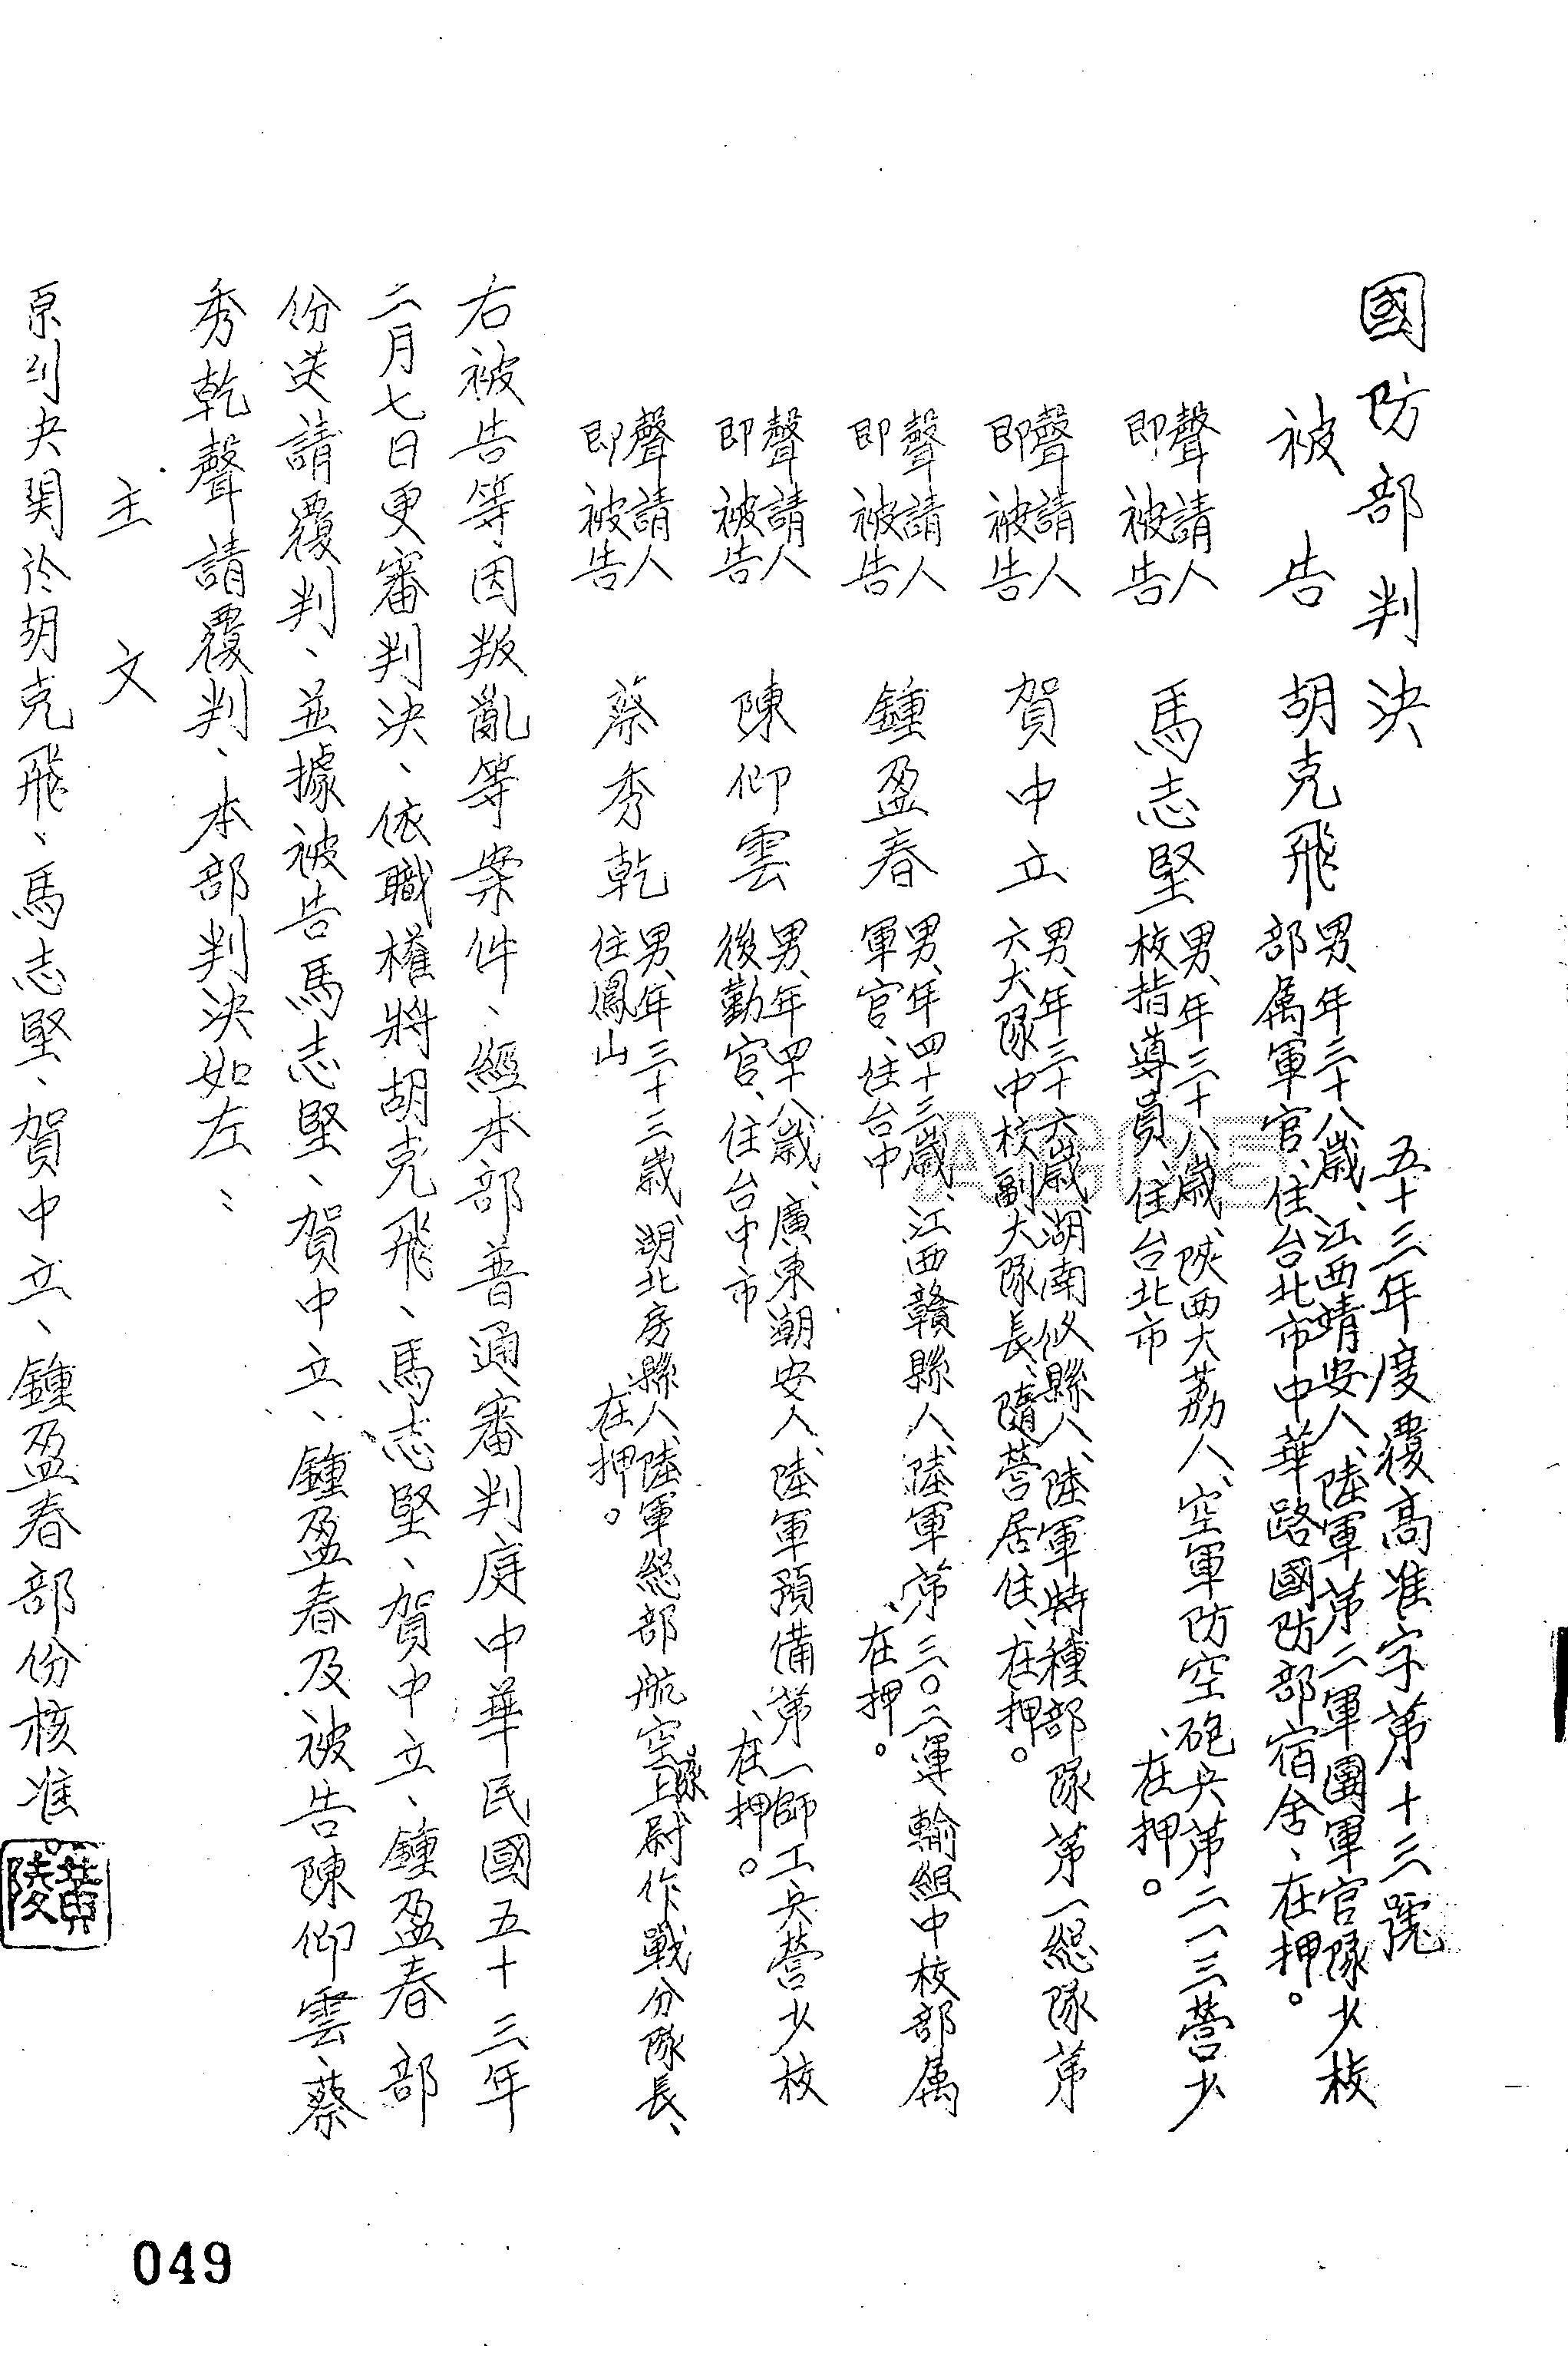 國防部判決
五十三年度覆高准字第十三號
被告 胡克飛 男、年三十八歲、江西靖安人、陸軍第二軍團軍官隊少校
部屬軍官、住台北市中華路國防部宿舍、在押。
聲請人
即被告 馬志堅 男、年三十八歲、陝西大荔人、空軍防空砲兵第二一三營少
校指導員、住台北市、在押。
聲請人
即被告 賀中立 男、年三十六歲、湖南攸縣人、陸軍特種部隊第一總隊第
六大隊中校副大隊長、隨營居住、在押。
聲請人
即被告 鍾盈春 男、年四十三歲、江西贛縣人、陸軍第三〇二運輸組中校部屬
軍官、住台中、在押。
聲請人
即被告 陳仰雲 男、年四十八歲、廣東潮安人、陸軍預備第一師工兵營少校
後勤官、住台中市、在押。
聲請人
即被告 蔡秀乾 男、年三十三歲、湖北房縣人、陸軍總部航空隊上尉作戰分隊長、
住鳳山、在押。
右被告等因叛亂等案件、經本部普通審判庭中華民國五十三年
二月七日更審判決、依職權將胡克飛、馬志堅、賀中立、鍾盈春部
份送請覆判、並據被告馬志堅、賀中立、鍾盈春及被告陳仰雲、蔡
秀乾聲請覆判、本部判決如左：
主文
原判決關於胡克飛、馬志堅、賀中立、鍾盈春部份核准。
黃陵
AGCS
049